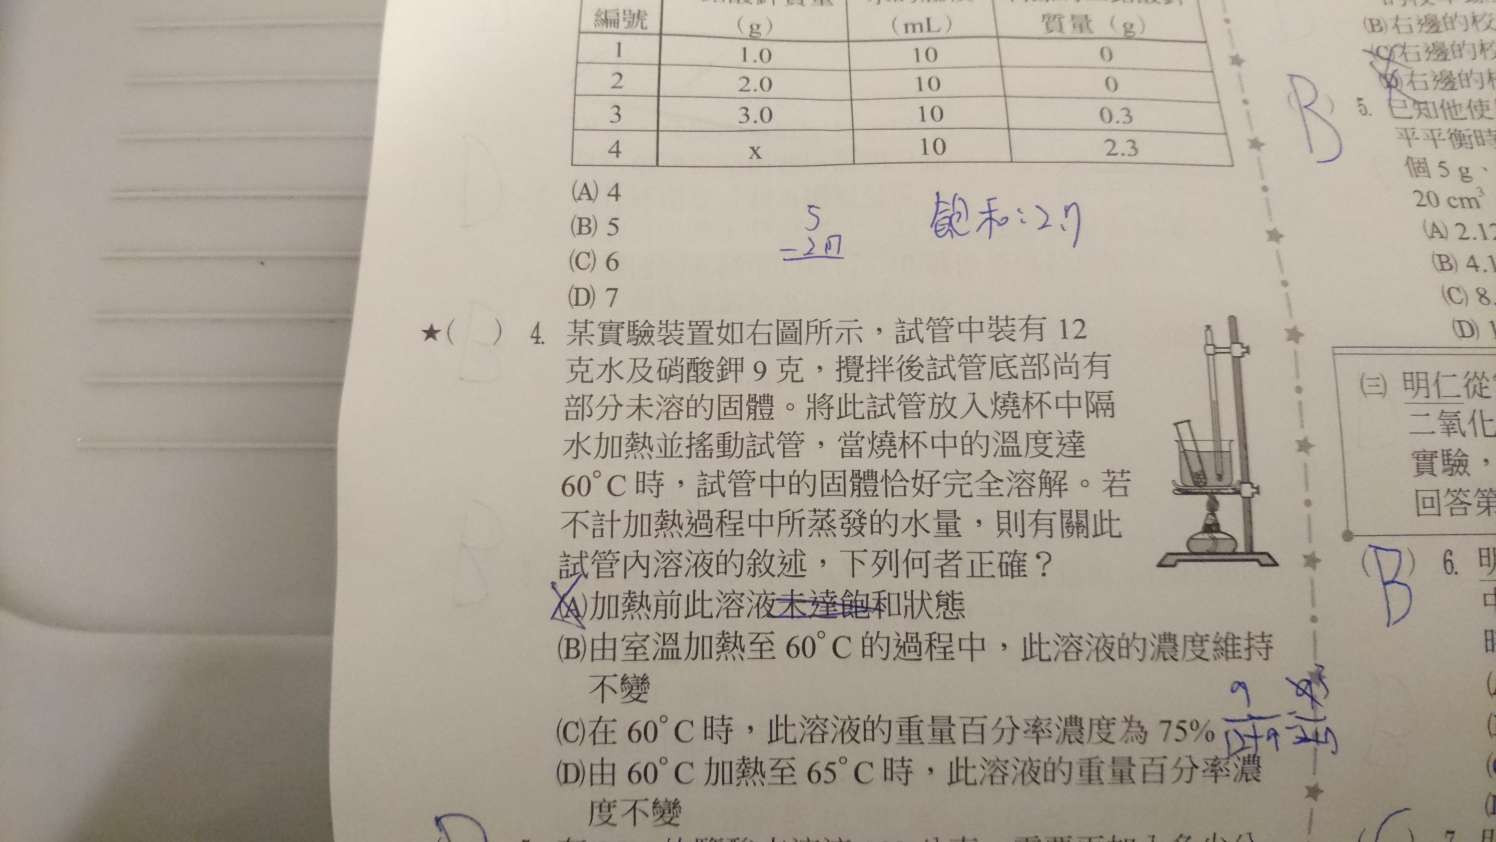 編號
（g）
（mL）
質量（g）
1 1.0 10 0
2 2.0 10 0
3 3.0 10 0.3
4 x 10 2.3
(A) 4
(B) 5
(C) 6
(D) 7
5
-2.7
飽和：2.7
★（ ） 4. 某實驗裝置如右圖所示，試管中裝有 12
克水及硝酸鉀 9 克，攪拌後試管底部尚有
部分未溶的固體。將此試管放入燒杯中隔
水加熱並搖動試管，當燒杯中的溫度達
60°C 時，試管中的固體恰好完全溶解。若
不計加熱過程中所蒸發的水量，則有關此
試管內溶液的敘述，下列何者正確？
(A)加熱前此溶液未達飽和狀態
(B)由室溫加熱至 60°C 的過程中，此溶液的濃度維持
不變
(C)在 60°C 時，此溶液的重量百分率濃度為 75%
9
12+9
(D)由 60°C 加熱至 65°C 時，此溶液的重量百分率濃
度不變
(B)右邊的校
(C)右邊的校
(D)右邊的校
B
5. 已知他使
平平衡時
個 5 g、
20 cm³
(A) 2.12
(B) 4.1
(C) 8.
(D)
(三) 明仁從
二氧化
實驗，
回答第
（B） 6. 明
7.